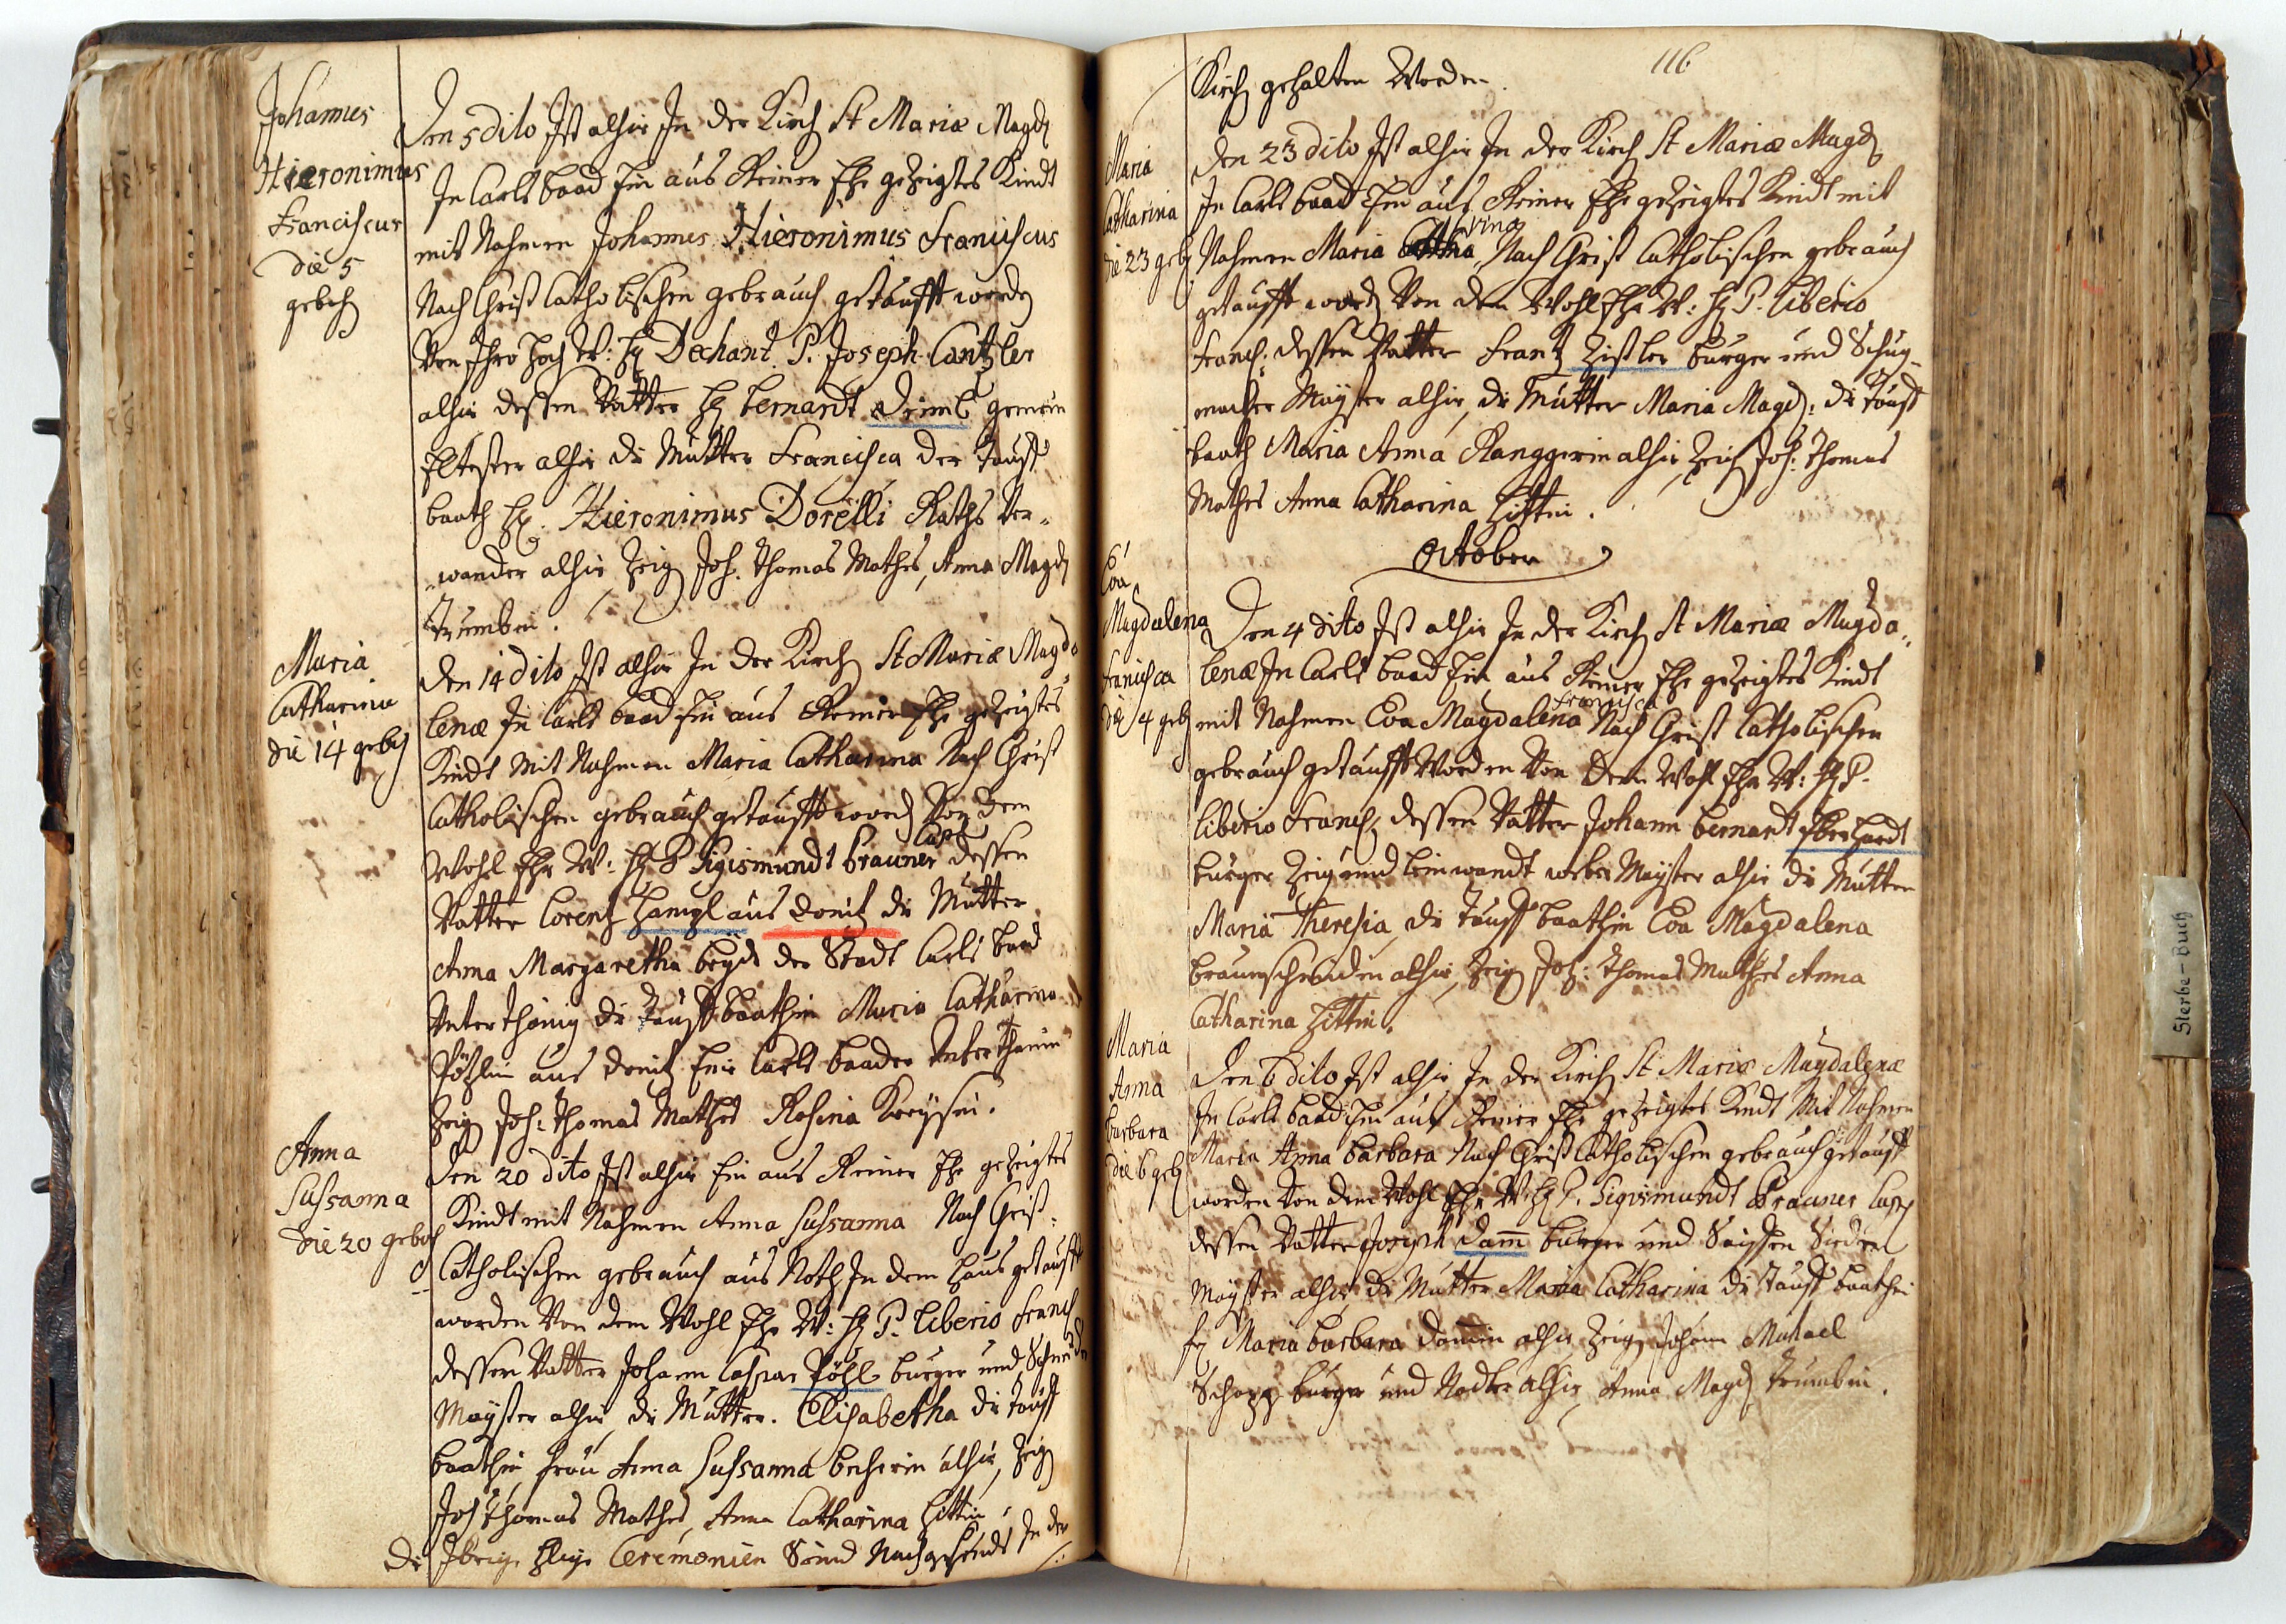 Johannes
Hieronimus
Franciscus
die 5
geboh
Den 5 dito Ist alhir In der Kirch St Mariæ Magd
In Carls baad Ein aus Reiner Ehe gezeigtes Kindt
mit Nahmen Johannes Hieronimus Franciscus
Nach Christ Catholischen gebrauch getaufft word
Von Ihro Hoch W: H Dechant P. Joseph Cantzler
alhir dessen Vatter H bernardt Deiml gemein
Eltester alhir die Mutter Francisca der Tauff
baath H. Hieronimus Dorelli Raths Ver-
wander alhir Zeig Joh. Thomas Mathes, Anna Magd
Trumbin.
Maria
Catharina
die 14 geboh
Den 14 dito Ist alhir In der Kirch St Mariæ Magda
lenæ In Carls baad Ein aus Reiner Ehe gezeigtes
Kindt Mit Nahmen Maria Catharina Nach Christ
Catholischen gebrauch getaufft word Von dem
Wohl Ehr W: H P Sigismundt Brauner Capl dessen
Vatter Lorentz Hamgl aus Donitz die Mutter
Anna Margaretha beyde der Stadt Carls baad
Unterthanig die Tauff baathin Maria Catharina
Pöhlin aus Donitz Ein Carls baader Unterthanin
Zeig Joh: Thomas Mathes Rosina Kreyßin.
Anna
Sussanna
die 20 geboh
Den 20 dito Ist alhir Ein aus Reiner Ehe gezeigtes
Kindt mit Nahmen Anna Sussanna Nach Christ:
Catholischen gebrauch aus Noth In dem Haus getaufft
worden Von dem Wohl Ehr W: H P. Liberio Franc
dessen Vatter Johann Caspar Pöhl burger und Schneider
Mayster alhir die Mutter. Elisabetha die Tauff
baathin frau Anna Sussanna becherin alhir, Zeig
Joh Thomas Mathes, Anna Catharina Hittin
Die Ibrige Hlige Ceremonien Seind Nachgehends In der
116
Kirch gehalten Worden.
Maria
Catharina
die 23 geb
Den 23 dito Ist alhir In der Kirch St Mariæ Magd
In Carls baad Ein aus Reiner Ehe gezeigtes Kindt mit
Nahmen Maria Catharina Nach Christ Catholischen gebrauch
getaufft word Von dem Wohl Ehr W: H P. Liberio
Franc: dessen Vatter Frantz Zistler burger und Schug-
macher Mayster alhir, die Mutter Maria Magd: die Tauff
baath Maria Anna Ranggerin alhir, Zeig Joh: Thomas
Mathes Anna Catharina Hittin.
October
Eva
Magdalena
Francisca
die 4 geb
Den 4 dito Ist alhir In der Kirch St Mariæ Magda-
lenæ In Carls baad Ein aus Reiner Ehe gezeigtes Kindt
mit Nahmen Eva Magdalena Francisca Nach Christ Catholischen
gebrauch getaufft Worden Von Dem Wohl Ehr W: H P.
Liberio Franc, dessen Vatter Johann bernardt Eberhardt
burger Zeig und leinwandt weber Mayster alhir die Mutter
Maria Theresia, die Tauff baathin Eva Magdalena
Zeig Joh: Thomas Mathes Anna
Catharina Hittin.
Maria
Anna
barbara
die 6 geb
Den 6 dito Ist alhir In der Kirch St Mariæ Magdalenæ
In Carls baad Ein aus Reiner Ehe gezeigtes Kindt Mit Nahmen
Maria Anna barbara Nach Christ Catholischen gebrauch getaufft
worden Von dem Wohl Ehr W: H P. Sigismundt Brauner Capl
dessen Vatter Joseph Dam̄ burger und Seiffen Sieder
Mayster alhir, die Mutter Maria Catharina die Tauff baathin
fr Maria barbara Damin alhir Zeig Johann Michael
Schopp burger und Nadler alhir, Anna Magd Trumbin.
Sterbe-Buch